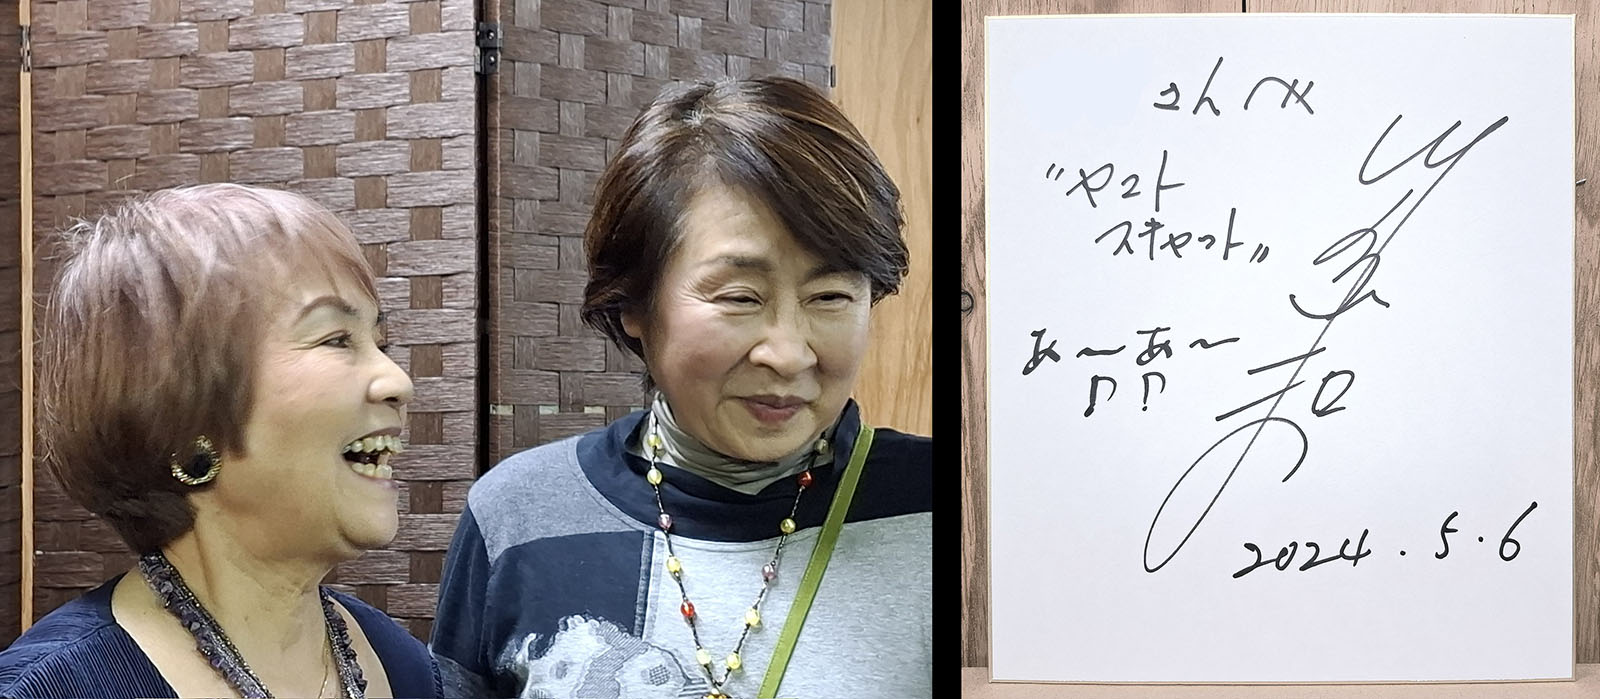 さんへ
"ヤマト
スキャット"
あ〜あ〜
♪♪
2024.5.6